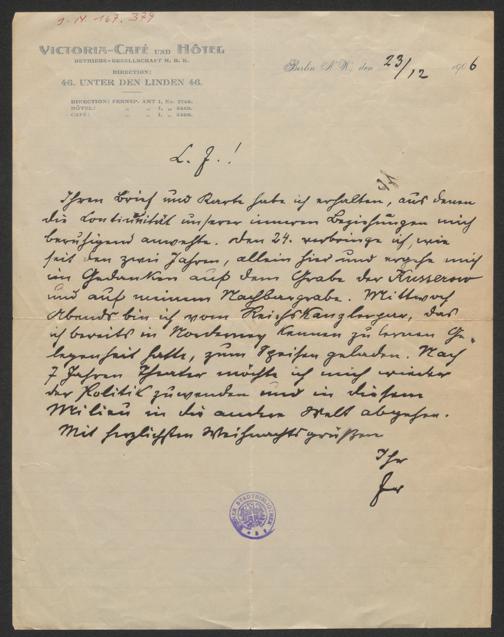 J. N. 167.379
VICTORIA-CAFÉ UND HÔTEL
BETRIEBS-GESELLSCHAFT M. B. H.
DIRECTION:
46. UNTER DEN LINDEN 46.
DIRECTION: FERNSP. AMT I, No.
HÔTEL: " " I, "
CAFÉ: " " I, "
Berlin N. W., den 23/12 1906
L. F.!
Ihren Brief und Karte habe ich erhalten, aus denen
die Kontinuität unserer inneren Beziehungen mich
beruhigend anwehte. Den 24. verbringe ich, wie
seit den zwei Jahren, allein hier und ergehe mich
in Gedanken auf dem Grabe der Kusserow
und auf meinem Nachbargrabe. Mittwoch
Abends bin ich vom Reichskanzlerpaar, das
ich bereits in Norderney kennen zu lernen Ge-
legenheit hatte, zum Speisen geladen. Nach
7 Jahren Theater möchte ich mich wieder
der Politik zuwenden und in diesem
Milieu in die andere Welt abgehen.
Mit herzlichsten Weihnachtsgrüßen
Ihr